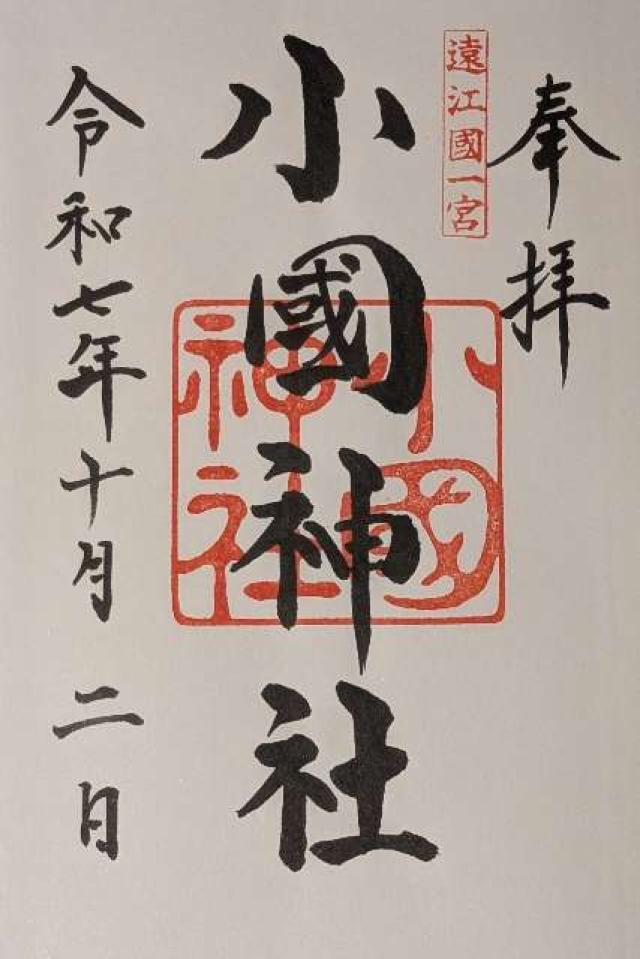 奉拝
遠江國一宮
小國神社
小國
神社
令和七年十月二日